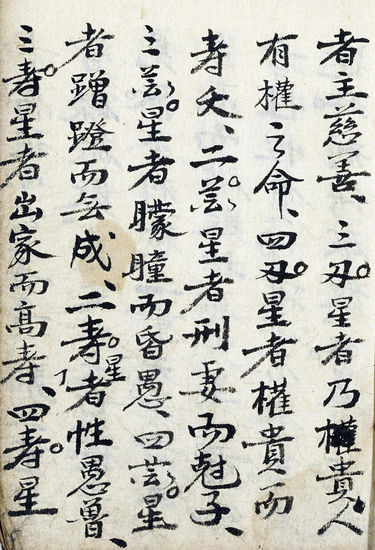 者主慈善、三刃星者乃權貴人
有權之命、四刃星者權貴而
寿夭、二芸星者刑妻而尅子、
三芸星者朦瞳而昏愚、四芸星
者蹭蹬而无成、二寿星者性愚魯、
三寿星者出家而高寿、四寿星